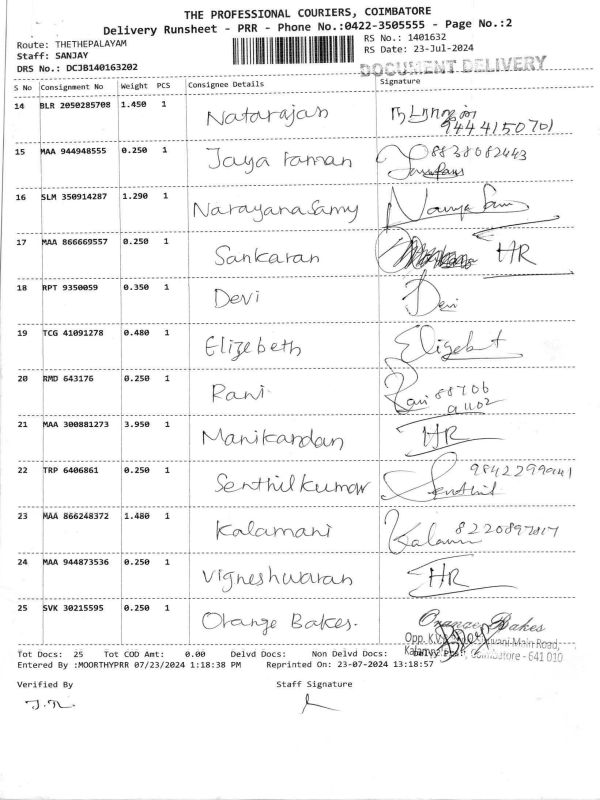 THE PROFESSIONAL COURIERS, COIMBATORE
Delivery Runsheet - PRR - Phone No.:0422-3505555 - Page No.:2
Route: THETHEPALAYAM RS No.: 1401632
Staff: SANJAY RS Date: 23-Jul-2024
DRS No.: DCJB140163202 DOCUMENT DELIVERY
S No Consignment No Weight PCS Consignee Details Signature
14 BLR 2050285708 1.450 1 Natarajan
9444150701
15 MAA 944948555 0.250 1 Jaya raman 8838082443
16 SLM 350914287 1.290 1 Narayanasamy
17 MAA 866669557 0.250 1 Sankaran HR
18 RPT 9350059 0.350 1 Devi Devi
19 TCG 41091278 0.480 1 Elizebeth Elizebet
20 RMD 643176 0.250 1 Rani Rani 88706
21 MAA 300881273 3.950 1 Manikandan HR
22 TRP 6406861 0.250 1 Senthilkumar Senthil
23 MAA 866248372 1.480 1 Kalamani
24 MAA 944873536 0.250 1 Vigneshwaran HR
25 SVK 30215595 0.250 1 Orange Bakes. Orange Bakes
Main Road,
Coimbatore - 641 010
Tot Docs: 25 Tot COD Amt: 0.00 Delvd Docs: Non Delvd Docs:
Entered By :MOORTHYPRR 07/23/2024 1:18:38 PM Reprinted On: 23-07-2024 13:18:57
Verified By Staff Signature